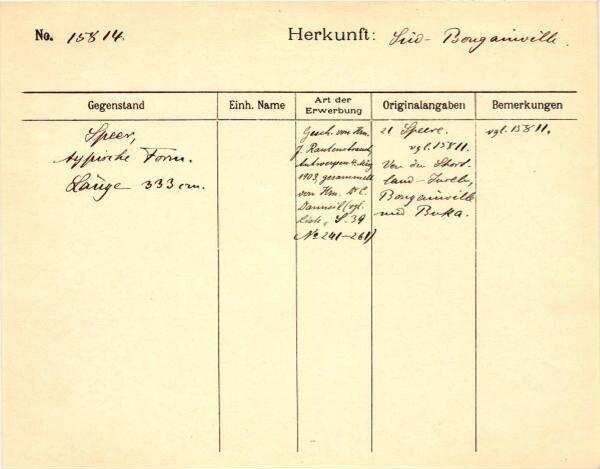 No. 15814.
Herkunft: Süd-Bougainville.
Gegenstand
Einh. Name
Art der Erwerbung
Originalangaben
Bemerkungen
Speer,
typische Form.
Länge 333 cm.
Gesch. von Hrn.
J. Rautenstrauch,
Antwerpen
1903, gesammelt
von Hrn.
Danneil (vgl.
Liste, S. 39
No 241-261)
21 Speere.
vgl. 15811.
Von den Short-
land-Inseln,
Bougainville
und Buka.
vgl. 15811.